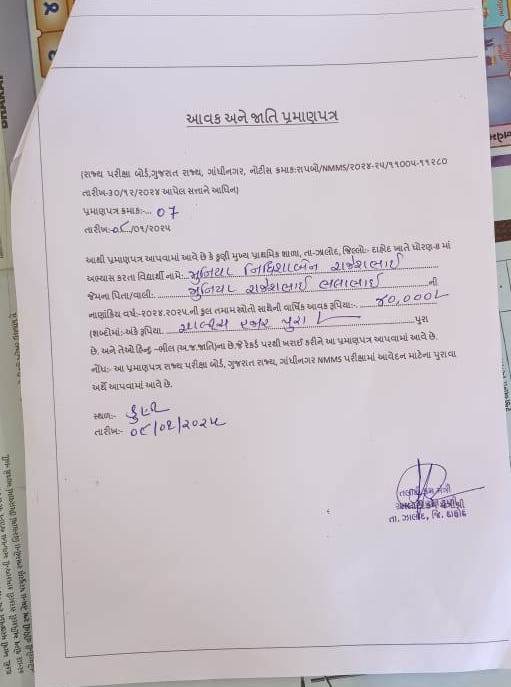 આવક અને જાતિ પ્રમાણપત્ર
(રાજ્ય પરીક્ષા બોર્ડ,ગુજરાત રાજ્ય, ગાંધીનગર, નોટીસ ક્રમાક:રાપબો/NMMS/૨૦૨૪-૨૫/૧૧૦૦૫-૧૧૨૮૦
તારીખ-૩૦/૧૨/૨૦૨૪ આપેલ સત્તાને આધિન)
પ્રમાણપત્ર ક્રમાક:-... 07
તારીખ:-૦૮/૦૧/૨૦૨૫
આથી પ્રમાણપત્ર આપવામાં આવે છે કે કુણી મુખ્ય પ્રાથમિક શાળા, તા-ઝાલોદ, જિલ્લો:- દાહોદ ખાતે ધોરણ-૮ માં
અભ્યાસ કરતા વિદ્યાર્થી નામે:- મુનિયા નિધિશાબેન રાજેશભાઈ
જેમના પિતા/વાલી:- મુનિયા રાજેશભાઈ લાલાભાઈ ની
નાણાંકિય વર્ષ-૨૦૨૪.૨૦૨૫ની કુલ તમામ સ્ત્રોતો સાથેની વાર્ષિક આવક રૂપિયા:- ૪૦,૦૦૦/-
(શબ્દોમાં:-અંકે રૂપિયા ચાલીસ હજાર પુરા પુરા
છે. અને તેઓ હિન્દુ -ભીલ (અ.જ.જાતિ)ના છે.જે રેકર્ડ પરથી ખરાઈ કરીને આ પ્રમાણપત્ર આપવામાં આવે છે.
નોંધ:- આ પ્રમાણપત્ર રાજ્ય પરીક્ષા બોર્ડ, ગુજરાત રાજ્ય, ગાંધીનગર NMMS પરીક્ષામાં આવેદન માટેના પુરાવા
અર્થે આપવામાં આવે છે.
સ્થળ:-
તારીખ:- ૦૮/૦૧/૨૦૨૫
તલાટી કમ મંત્રી
તા. ઝાલોદ, જિ. દાહોદ